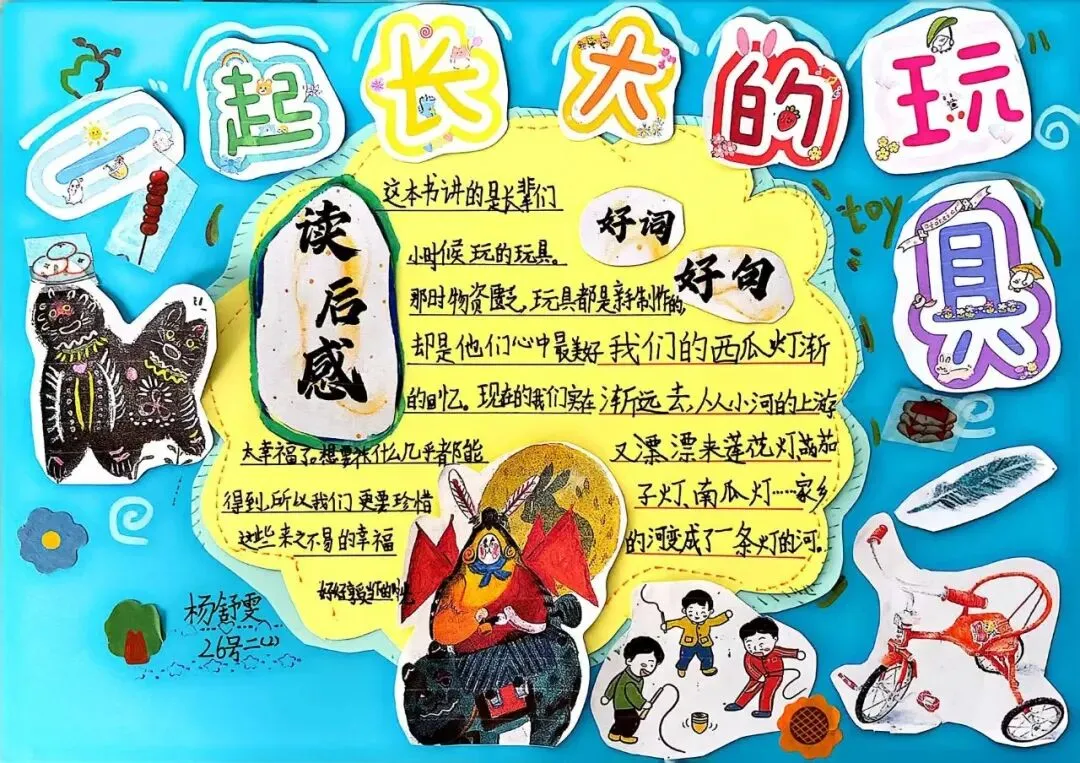 一起长大的玩具
toy
读后感
这本书讲的是长辈们
小时候玩的玩具。
那时物资匮乏,玩具都是亲手制作的,
却是他们心中最美好
的回忆。现在的我们实在
太幸福了。想要什么几乎都能
得到,所以我们更要珍惜
这些来之不易的幸福
好好享受当下的
好词
好句
我们的西瓜灯渐
渐远去,从小河的上游
又漂漂来莲花灯茄
子灯、南瓜灯……家乡
的河变成了一条灯的河。
杨舒雯
26号二(2)